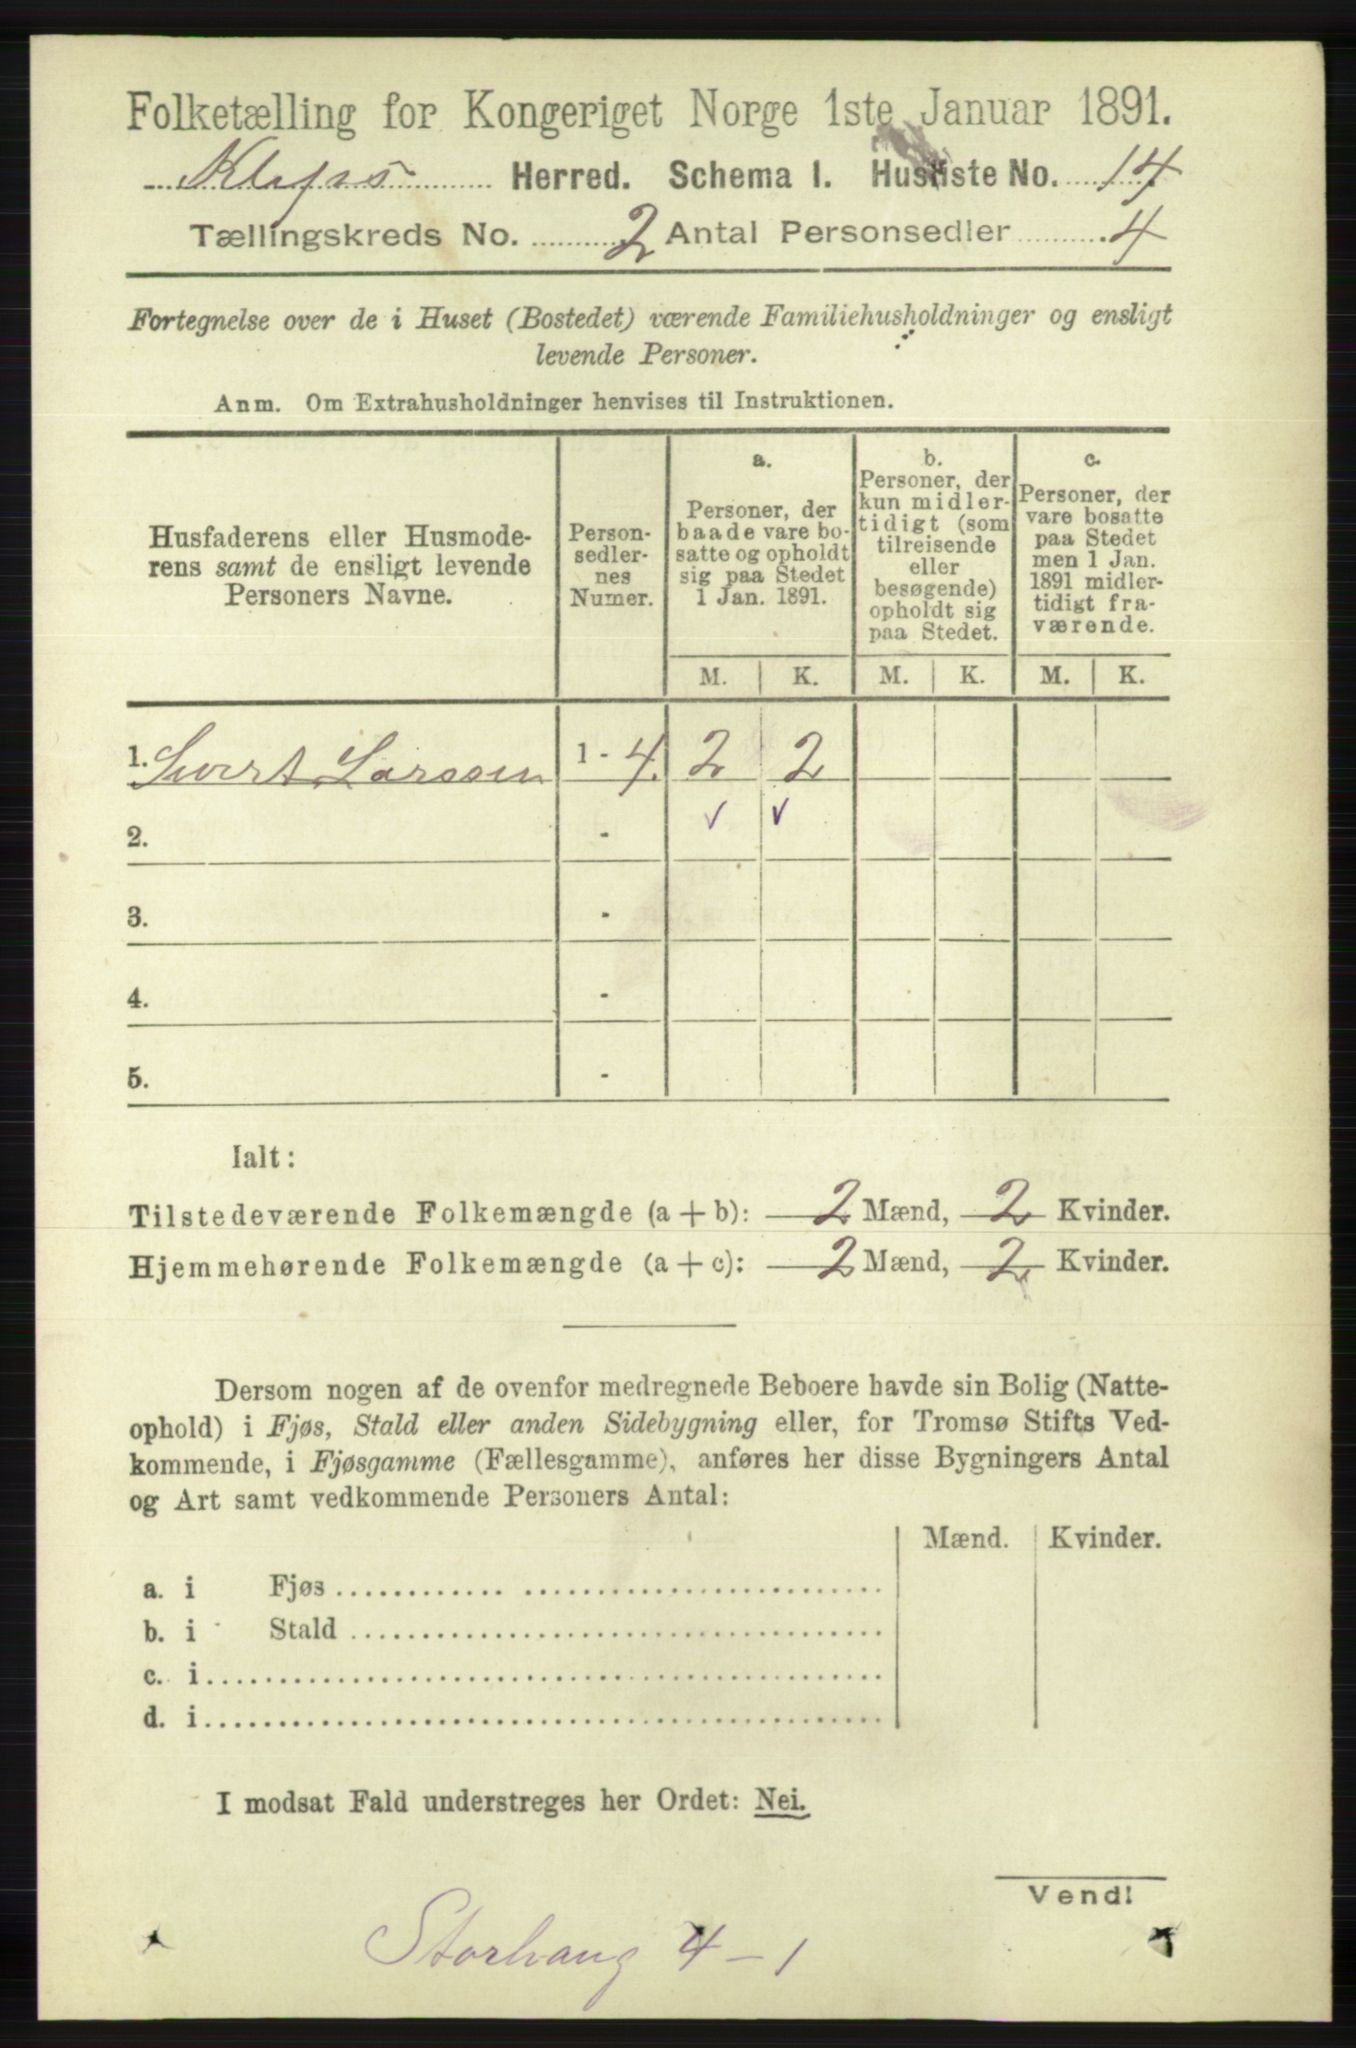 Folketælling for Kongeriget Norge 1ste Januar 1891.
Klepps Herred. Schema I. Husliste No. 14
Tællingskreds No. 2 Antal Personsedler 4
Fortegnelse over de i Huset (Bostedet) værende Familiehusholdninger og ensligt
levende Personer.
Anm. Om Extrahusholdninger henvises til Instruktionen.
Husfaderens eller Husmode-
rens samt de ensligt levende
Personers Navne.
Person-
sedler-
nes
Numer.
a.
Personer, der
baade vare bo-
satte og opholdt
sig paa Stedet
1 Jan. 1891.
b.
Personer, der
kun midler-
tidigt (som
tilreisende
eller
besøgende)
opholdt sig
paa Stedet.
c.
Personer, der
vare bosatte
paa Stedet
men 1 Jan.
1891 midler-
tidigt fra-
værende.
M. K. M. K. M. K.
1. Sivert Larssen 1 - 4. 2 2
2. -
3. -
4. -
5. -
Ialt:
Tilstedeværende Folkemængde (a + b): 2 Mænd, 2 Kvinder.
Hjemmehørende Folkemængde (a + c): 2 Mænd, 2 Kvinder.
Dersom nogen af de ovenfor medregnede Beboere havde sin Bolig (Natte-
ophold) i Fjøs, Stald eller anden Sidebygning eller, for Tromsø Stifts Ved-
kommende, i Fjøsgamme (Fællesgamme), anføres her disse Bygningers Antal
og Art samt vedkommende Personers Antal:
Mænd. Kvinder.
a. i Fjøs
b. i Stald
c. i
d. i
I modsat Fald understreges her Ordet: Nei.
Vend!
Storhaug 4 - 1